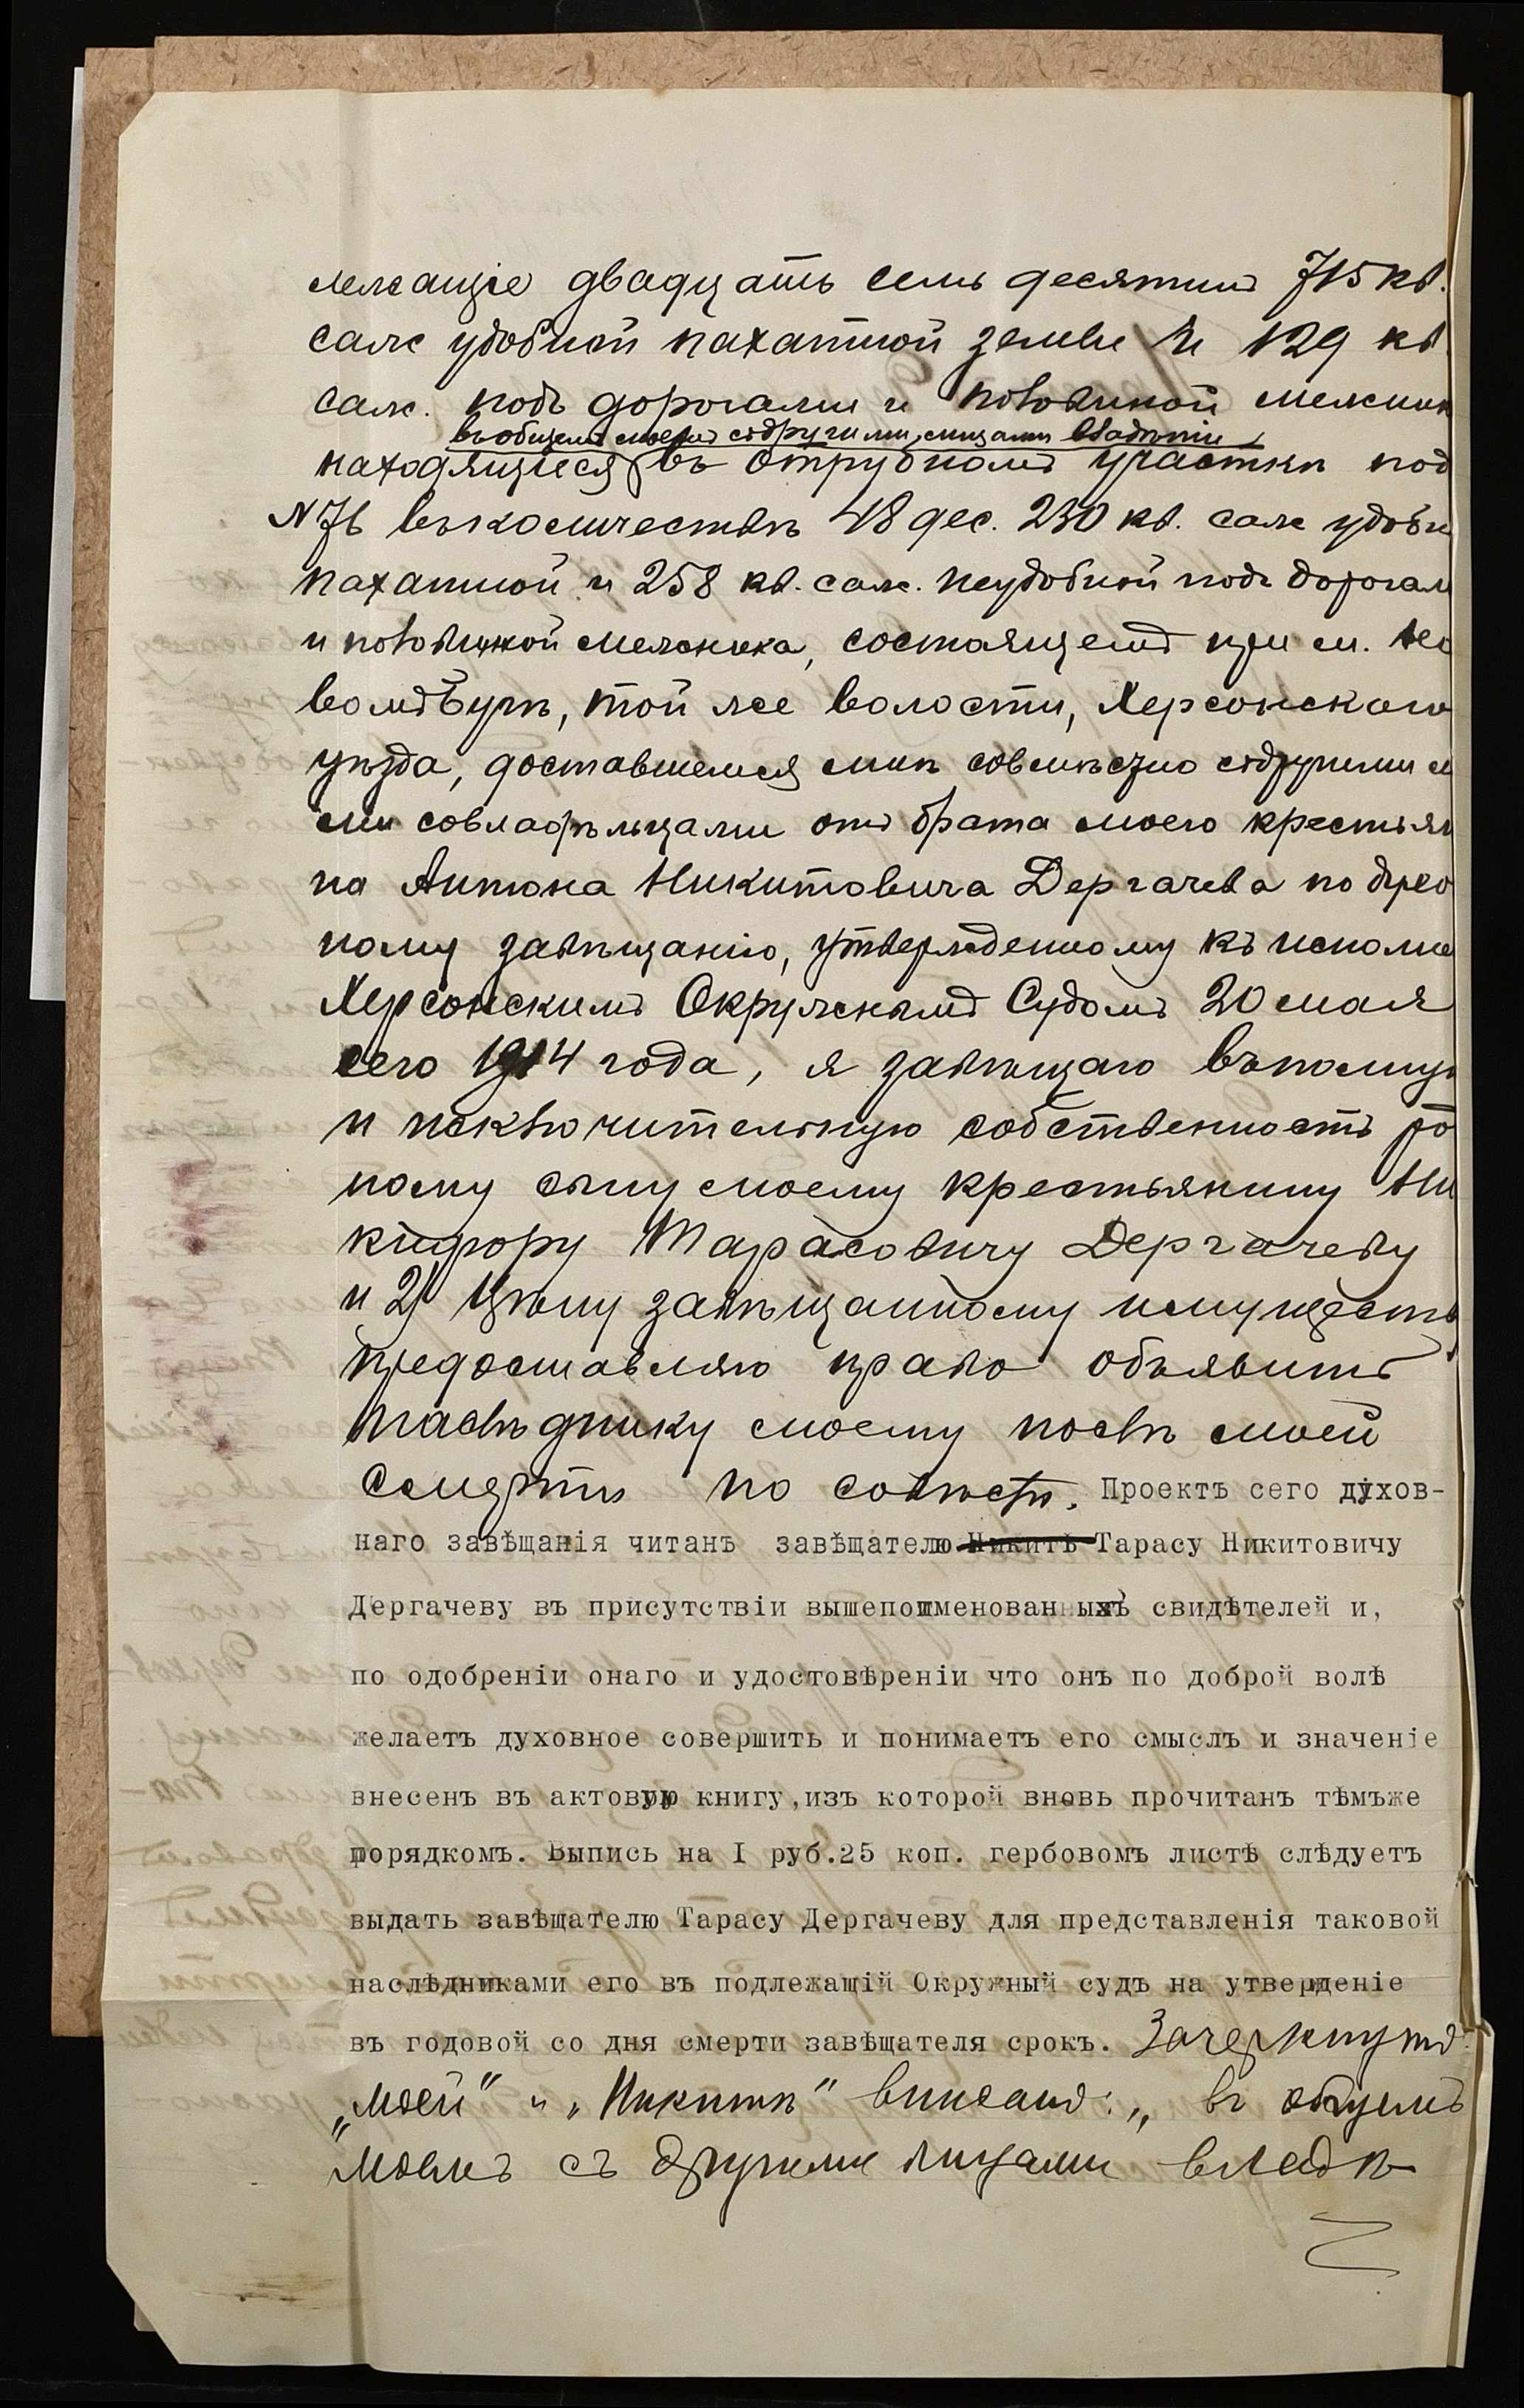 лежащіе двадцать семь десятинъ 715 кв.
саж удобной пахатной земли и 129 кв
саж. подъ дорогами и половиной межник
въ общемъ моемъ съ другими лицами владѣніи
находящіеся въ отрубномъ участкѣ под
N 76 въ количествѣ 48 дес. 230 кв. саж удобн
пахатной и 258 кв. саж. неудобной подъ дорогам
и половиной межника, состоящемъ при м.
той же волости, Херсонскаго
уѣзда, доставшемся мнѣ совмѣстно съ другими м
ими совладѣльцами отъ брата моего крестьян
на Антона Никитовича Дергачева по духо
ному завѣщанію, утвержденному къ исполне
Херсонскимъ Окружнымъ Судомъ 20 мая
сего 1914 года, я завѣщаю въ полную
и исключительную собственность ро
ному сыну моему крестьянину Ни
кифору Тарасовичу Дергачеву
и 2/ Цѣну завѣщанному имуществ
предоставляю право объявить
наслѣднику моему послѣ моей
смерти по совѣсти. Проектъ сего духов-
наго завѣщанія читанъ завѣщателю Никитѣ Тарасу Никитовичу
Дергачеву въ присутствіи вышепоименованныхъ свидѣтелей и,
по одобреніи онаго и удостовѣреніи что онъ по доброй волѣ
желаетъ духовное совершить и понимаетъ его смыслъ и значеніе
внесенъ въ актовую книгу,изъ которой вновь прочитанъ тѣмъже
порядкомъ. Выпись на I руб.25 коп. гербовомъ листѣ слѣдуетъ
выдать завѣщателю Тарасу Дергачеву для представленія таковой
наслѣдниками его въ подлежащій Окружный судъ на утвержденіе
въ годовой со дня смерти завѣщателя срокъ. Зачеркнуто:
„моей" и „Никитѣ" вписано: „въ общемъ
моемъ съ другими лицами владѣ